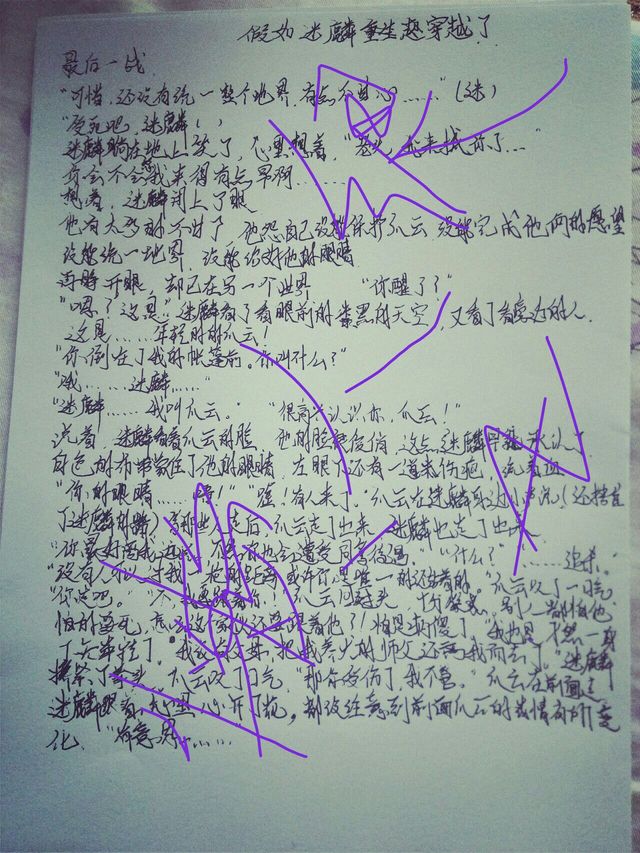 假如迷麟重生想穿越了
最后一战
"可惜，还没有统一整个地界，有点不甘心……"（迷）
"受死吧，迷麟！"
迷麟躺在地上笑了，心里想着，"老大，我来找你了…"
你会不会怨我来得有点早啊………
想着，迷麟闭上了眼
他有太多的不甘了 他怨自己没能保护爪云 没能完成他俩的愿望
没能统一地界，没能治好他的眼睛
再睁开眼，却已在另一个世界 "你醒了？"
"嗯？这是"迷麟看了看眼前的紫黑的天空，又看了看旁边的人，
这是……年轻时的爪云！
"你倒在了我的帐蓬前。你叫什么？"
"我……迷麟……"
"迷麟……我叫爪云。" "很高兴认识你，爪云！"
说着，迷麟看着爪云的脸，他的脸很俊俏，这点迷麟早就承认了
白色的布带蒙住了他的眼睛 左眼下还有一道紫伤疤，
"你的眼睛……" "嘘！有人来了。"爪云在迷麟耳边小声说（还捂着
了迷麟的嘴）等那些人走后 爪云走了出来 迷麟也走了出来
"你最好离我远点，不然你也会遭受同等待遇。" "什么？" "……追杀。"
"没有人可以与我 的距离 或许你是唯一的还活着的。"爪云叹了一口气
"你走吧。" "不 我要跟着你" 爪云回过头 十分 别人都怕他
怕的要死，怎么这家伙还要跟着他？！怕是 傻了 "我也是 一身
了 把我养大的师父还为我而去了"迷麟
"爪云叹了口气，"那你受伤了，我不管。"爪云在前面走
迷麟跟着， 心开了花。都没注意到前面爪云的表情有所变
化。"有意思………